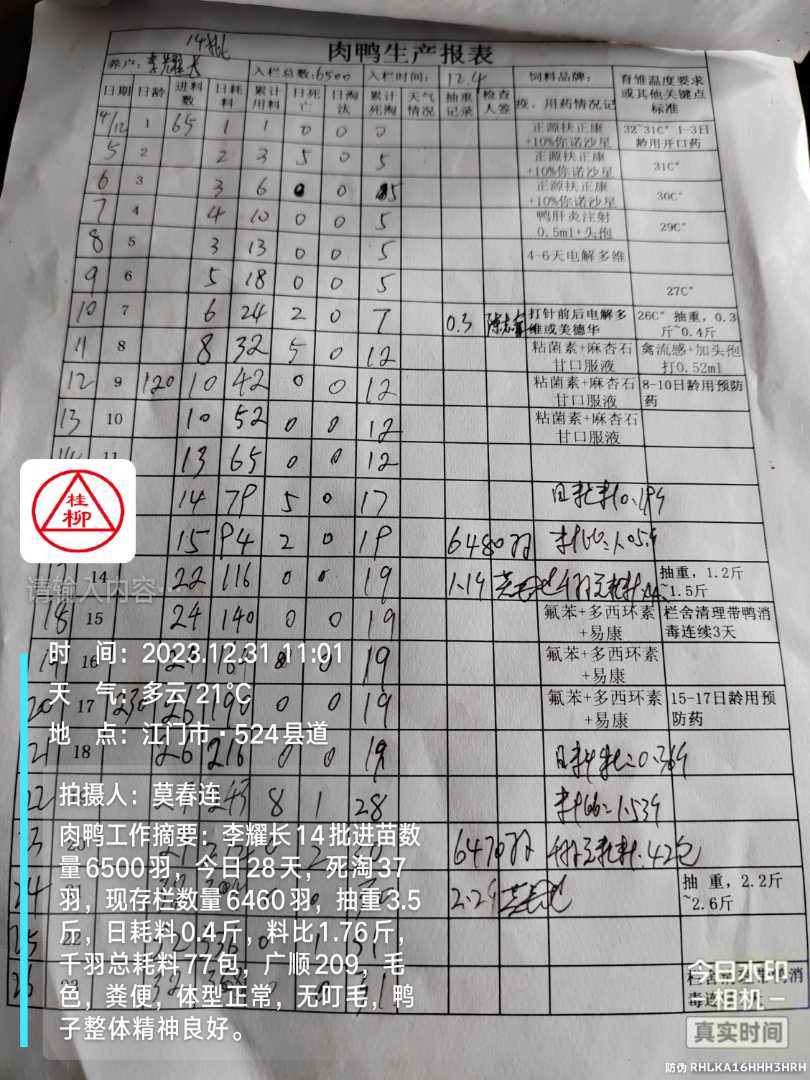 14批
肉鸭生产报表
养户: 李耀长 入栏总数:6500 入栏时间: 12.4 饲料品牌: 育雏温度要求或其他关键点标准
日期 日龄 进料数 日耗料 累计用料 日死亡 日淘汰 累计死淘 天气情况 抽重记录 检查人签 疫、用药情况记
4/12 1 65 1 1 0 0 0 正源扶正康+10%你诺沙星 32~31C° 1-3日龄用开口药
5 2 2 3 5 0 5 正源扶正康+10%你诺沙星 31C°
6 3 3 6 0 0 5 正源扶正康+10%你诺沙星 30C°
7 4 4 10 0 0 5 鸭肝炎注射0.5ml+头孢 29C°
8 5 3 13 0 0 5 4-6天电解多维
9 6 5 18 0 0 5 27C°
10 7 6 24 2 0 7 0.3 打针前后电解多维或美德华 26C° 抽重,0.3斤~0.4斤
11 8 8 32 5 0 12 粘菌素+麻杏石甘口服液 禽流感+加头孢打0.52ml
12 9 120 10 42 0 0 12 粘菌素+麻杏石甘口服液 8-10日龄用预防药
13 10 10 52 0 0 12 粘菌素+麻杏石甘口服液
11 13 65 0 0 12
14 79 5 0 17 日耗料0.19斤
15 94 2 0 19 6480羽
14 22 116 0 0 19 1.1斤 抽重,1.2斤~1.5斤
18 15 24 140 0 0 19 氟苯+多西环素+易康 栏舍清理带鸭消毒连续3天
16 19 氟苯+多西环素+易康
20 17 26 190 0 0 19 氟苯+多西环素+易康 15-17日龄用预防药
21 18 26 216 0 0 19 日耗料0.36斤
22 8 1 28 料比1.53斤
6470羽 千羽总耗料.42包
24 2.2斤 抽 重,2.2斤~2.6斤
25 22
26
桂柳
请输入内容…
时 间:2023.12.31 11:01
天 气:多云 21℃
地 点:江门市·524县道
拍摄人:莫春连
肉鸭工作摘要:李耀长14批进苗数
量6500羽,今日28天,死淘37
羽,现存栏数量6460羽,抽重3.5
斤,日耗料0.4斤,料比1.76斤,
千羽总耗料77包,广顺209,毛
色,粪便,体型正常,无叮毛,鸭
子整体精神良好。
今日水印
相机
真实时间
防伪 RHLKA16HHH3HRH